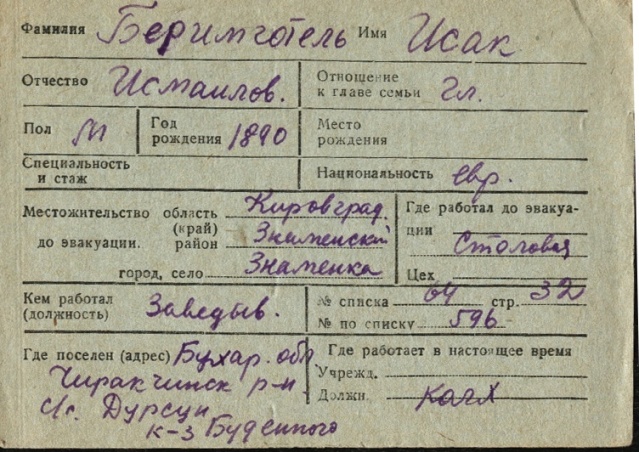 Фамилия Беримготель Имя Исак
Отчество Исмаилов. Отношение к главе семьи Гл.
Пол М Год рождения 1890 Место рождения
Специальность и стаж Национальность евр.
Местожительство область Кировград.
(край)
до эвакуации. район Знаменский
город, село Знаменка
Где работал до эвакуации Столовая
Цех
Кем работал (должность) Заведыв.
№ списка 64 стр. 32
№ по списку 596
Где поселен (адрес) Бухар. обл
Чиракчинск р-н
с/с. Дурсун
к-з Буденного
Где работает в настоящее время
Учрежд.
Должн. колх